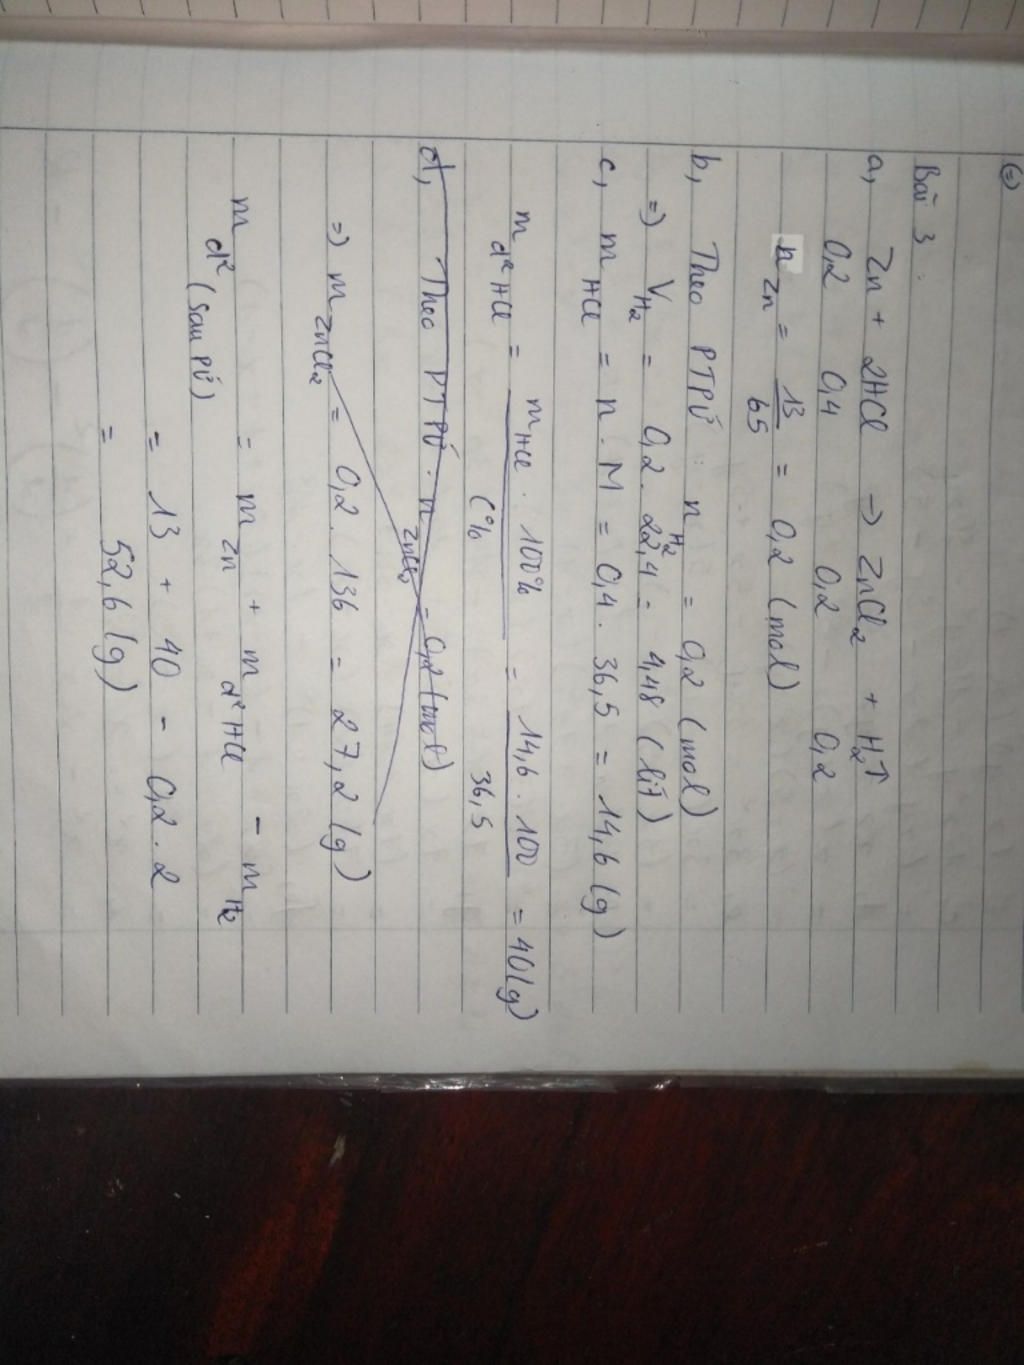 (=)
Bài 3 :
a, Zn + 2HCl → ZnCl2 + H2↑
0,2 0,4 0,2 0,2
nZn = 13/65 = 0,2 (mol)
b, Theo PTPƯ : nH2 = 0,2 (mol)
=) VH2 = 0,2 . 22,4 = 4,48 (lít)
c, mHCl = n . M = 0,4 . 36,5 = 14,6 (g)
md²HCl = mHCl . 100% / C% = 14,6 . 100 / 36,5 = 40 (g)
d, Theo PTPƯ . nZnCl2 = 0,2 (mol)
=) mZnCl2 = 0,2 . 136 = 27,2 (g)
md² (sau PƯ) = mZn + md²HCl - mH2
= 13 + 40 - 0,2 . 2
= 52,6 (g)